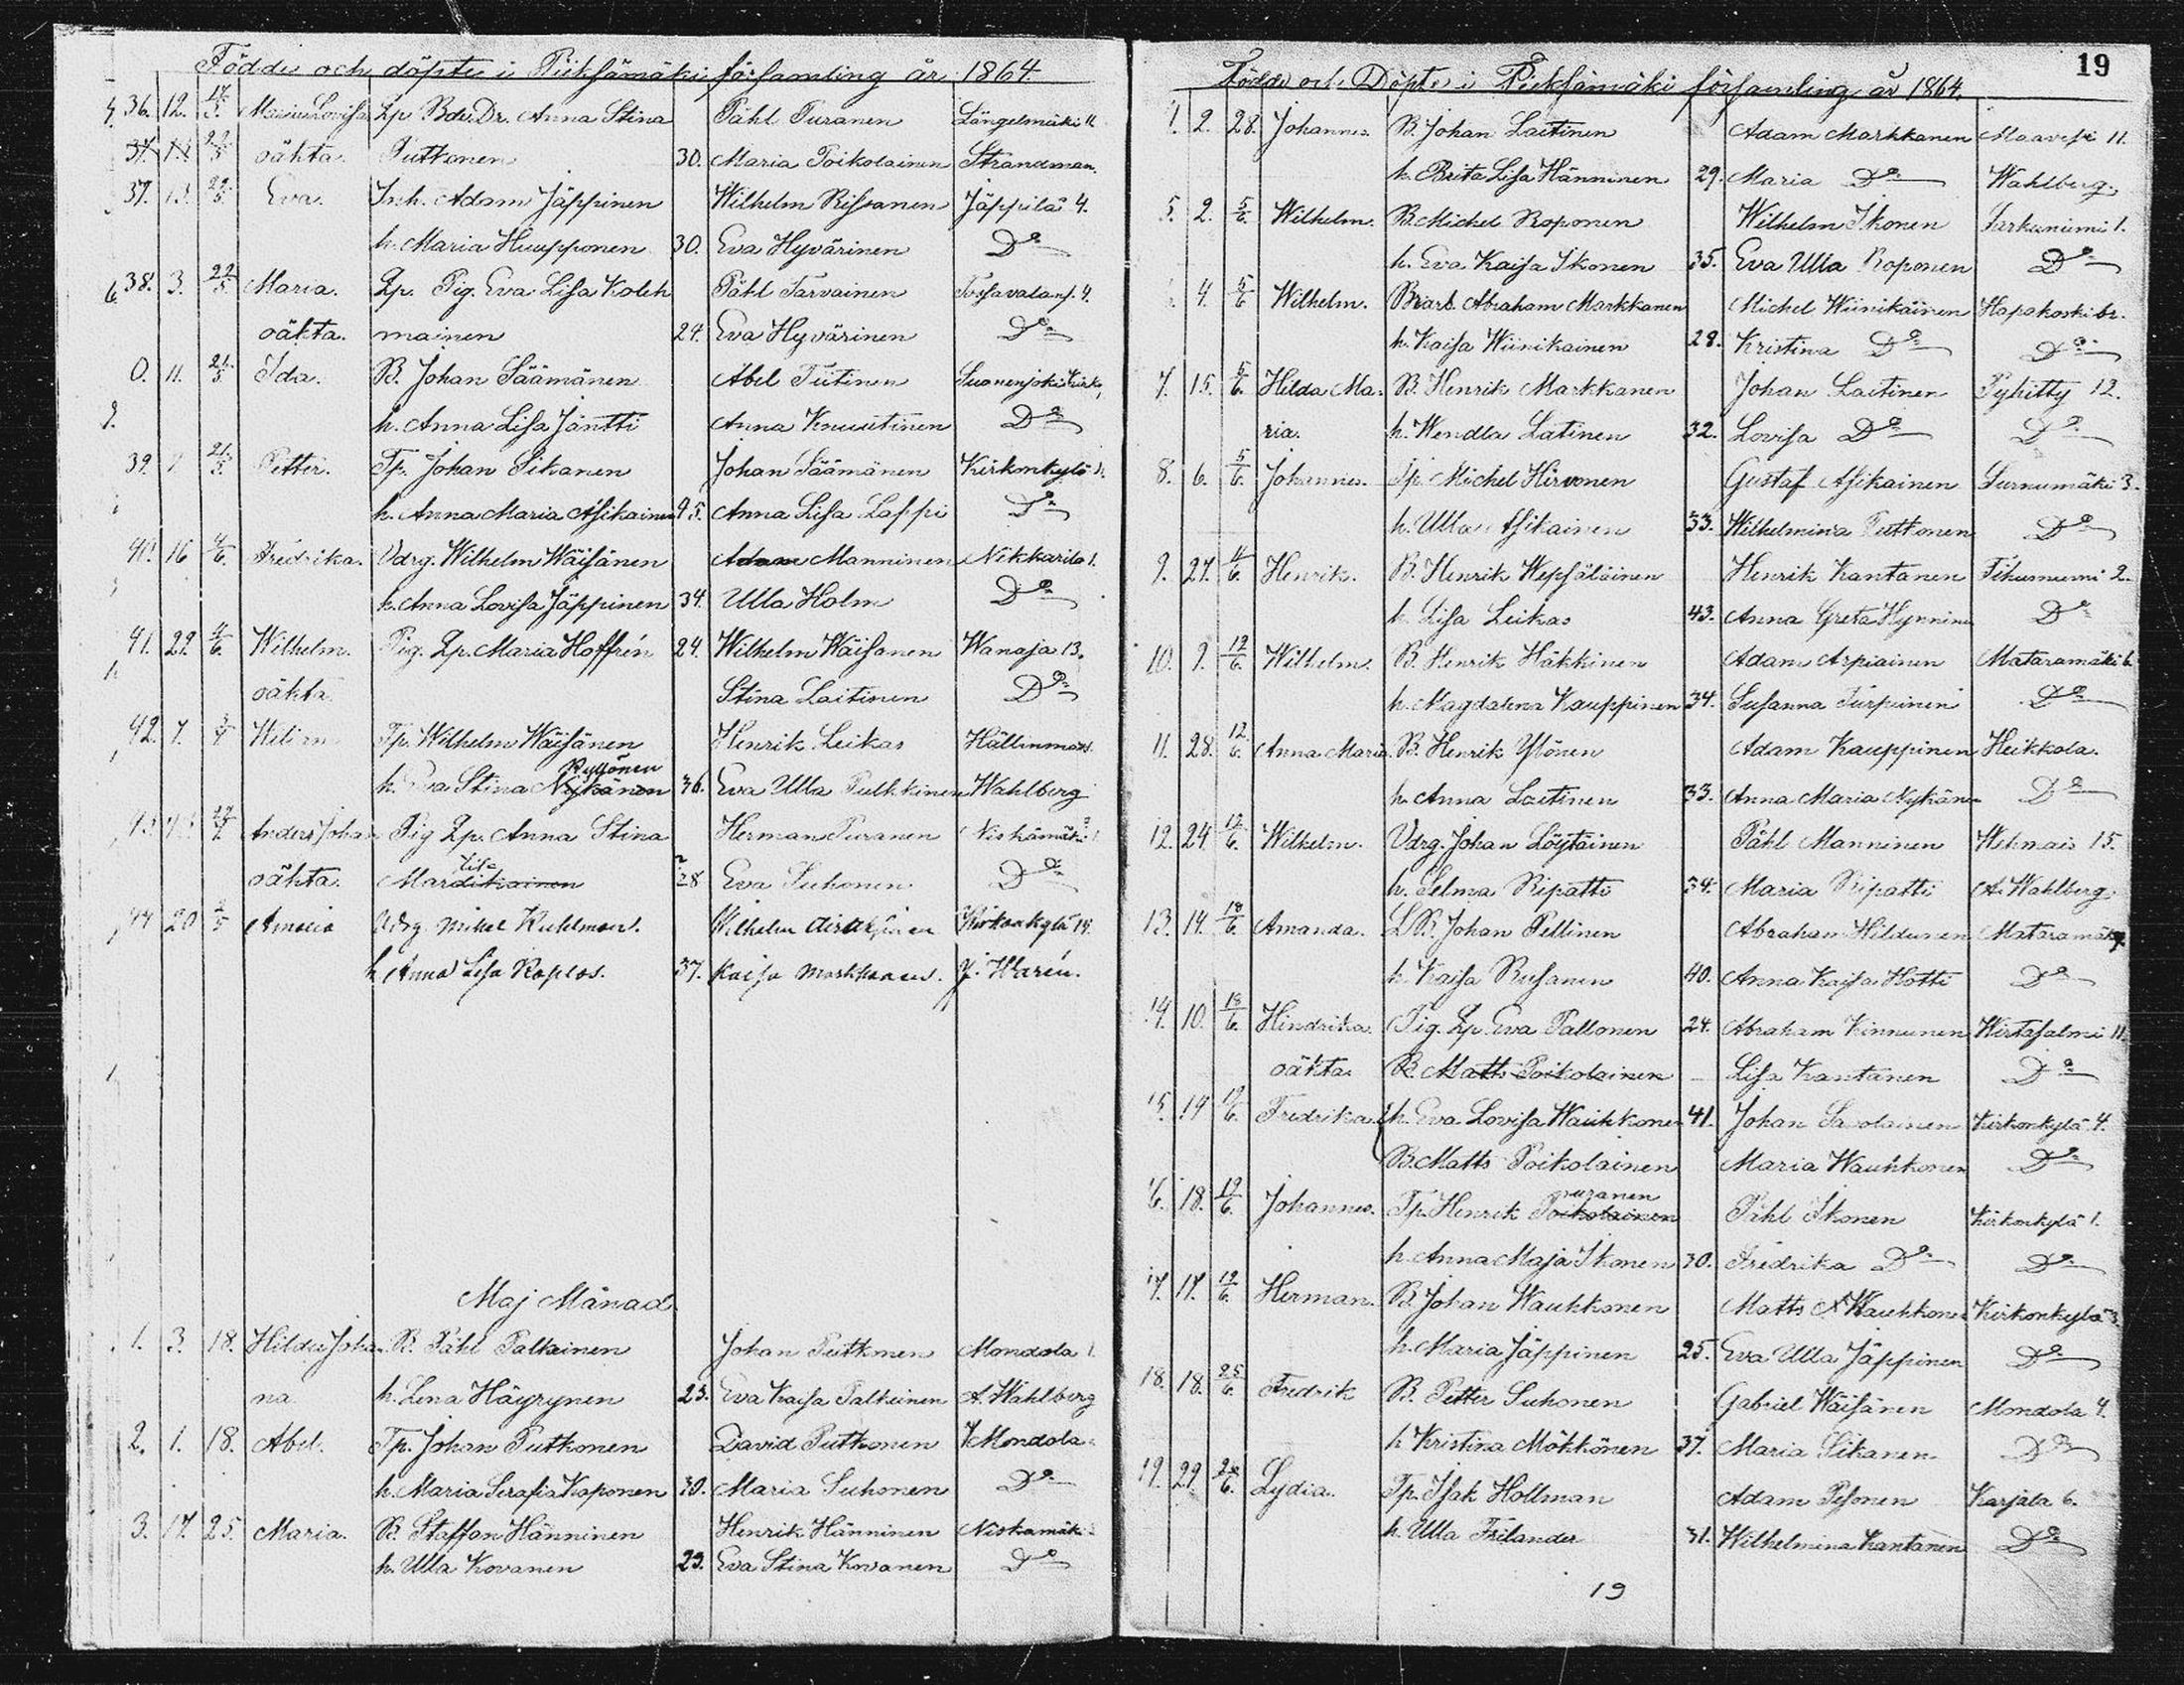 Födde och döpte i Pieksämäki församling år 1864
36. 12. 17/5. Maria Lovisa Lp. Bdr. Dr. Anna Stina Påhl Puranen Längelmäki 11.
oäkta. Putkonen 30. Maria Poikolainen Strandman.
37. 13. 22/5. Eva. Inh. Adam Jäppinen Wilhelm Rissanen Jäppilä 4.
h. Maria Huupponen 30. Eva Hyvärinen Do
38. 3. 22/5 Maria. Lp. Pig. Eva Lisa Koleh Påhl Tarvainen 4.
oäkta. mainen 24. Eva Hyvärinen Do
0. 11. 21/5 Ida. B. Johan Säämänen Abel Tiitinen Suonenjoki Kirk
h. Anna Lisa Jäntti Anna Knuutinen Do
39. 21/5. Petter. Tp. Johan Sikanen Johan Säämänen Kirkonkylä
h. Anna Maria Asikainen 95. Anna Lisa Lappi Do
40. 16 4/6. Fredrika. Vdrg. Wilhelm Wäisänen Adam Manninen Nikkarila 1.
h. Anna Lovisa Jäppinen 34. Ulla Holm Do
41. 29. 4/6. Wilhelm. Pig. Lp. Maria Hoffrén 24. Wilhelm Wäisänen Wanaja 13.
oäkta Stina Laitinen Do
42. 7. Tp. Wilhelm Wäisänen Henrik Leikas Hällinmäki
Ryyönen
h. Eva Stina Nykänen 36. Eva Ulla Pulkkinen Wahlberg
Anders Johan Pig Lp. Anna Stina Herman Puranen Niskamäki
oäkta. Mardikainen 28 Eva Suhonen Do
44 20 2/5 Amalia Vdrg. Mikel Kuhlman. Wilhelm Airaksinen Kirkonkylä 14.
h Anna Lisa Koplos. 37. Kaisa Markkanen. J. Harén.
Maj Månad
1. 3. 18. Hilda Joha- B. Påhl Palkainen Johan Putkonen Mondola 1.
na h. Lena Häyrynen 23. Eva Kaisa Palkeinen A. Wahlberg
2. 1. 18. Abel. Tp. Johan Putkonen David Putkonen Mondola
h. Maria Serafia Kaponen 30. Maria Suhonen Do
3. 17. 25. Maria. B. Staffan Hänninen Henrik Hänninen Niskamäki
h. Ulla Kovanen 29. Eva Stina Kovanen Do
19
Födde och Döpte i Pieksämäki församling år 1864.
2. 28. Johannes. B. Johan Laitinen Adam Markkanen Maavesi 11.
h. Brita Lisa Hänninen 29. Maria Do Wahlberg.
5. 2. 5/6. Wilhelm. B. Michel Roponen Wilhelm Ikonen Sarkaniemi 1.
h. Eva Kaisa Ikonen 35. Eva Ulla Roponen Do
4. 5/6 Wilhelm. Bearb. Abraham Markkanen Michel Wiinikäinen Hapakoski br.
h. Kaisa Wiinikainen 28. Kristina Do Do
7. 15. 5/6. Hilda Ma- B. Henrik Markkanen Johan Laitinen Pyhitty 12.
ria. h. Wendla Latinen 32. Lovisa Do Do
8. 6. 5/6. Johannes. Tp. Michel Hirvonen Gustaf Asikainen Surnumäki 3.
h. Ulla Asikainen 33. Wilhelmina Putkonen Do
9. 27. 11/6. Henrik. B. Henrik Wepsäläinen Henrik Kantanen Tihusniemi 2.
h. Lisa Leikas 43. Anna Greta Hynninen Do
10. 9. 12/6. Wilhelm. B. Henrik Häkkinen Adam Arpiainen Mataramäki 6.
h. Magdalena Kauppinen 34. Susanna Turpeinen Do
11. 28. 12/6. Anna Maria B. Henrik Ylönen Adam Kauppinen Heikkola.
h. Anna Laitinen 33. Anna Maria Nykän- Do
12. 24 12/6. Wilhelm. Vdrg. Johan Löytäinen Påhl Manninen Wehmais 15.
h. Selma Ripatti 34. Maria Ripatti A. Wahlberg.
13. 14. 18/6. Amanda. L.B. Johan Pellinen Abraham Hildunen Mataramäki
h. Kaisa Rusanen 40. Anna Kaisa Hotti Do
14. 10. 18/6. Hindrika. Pig. Lp. Eva Pallonen 24. Abraham Kinnunen Wirtasalmi 11.
oäkta. B. Matts Poikolainen Lisa Kantanen Do
15. 19 19/6. Fredrika. h. Eva Lovisa Wauhkonen 41. Johan Savolainen Kirkonkylä 4.
B. Matts Poikolainen Maria Wauhkonen Do
uranen
16. 18. 19/6. Johannes. Tp. Henrik Poikolainen Påhl Ikonen Kirkonkylä 1.
h. Anna Maja Ikonen 30. Fredrika Do Do
17. 17. 19/6. Herman. B. Johan Wauhkonen Matts Wauhkonen Kirkonkylä 3.
h. Maria Jäppinen 25. Eva Ulla Jäppinen Do
18. 18. 25/6. Fredrik B. Petter Suhonen Gabriel Wäisänen Mondola 4.
h Kristina Mökkönen 37. Maria Sikanen Do
19. 29. 26/6. Lydia. Tp. Isak Hollman Adam Pesonen Karjala 6.
h. Ulla Frilander 31. Wilhelmina Kantanen Do
19